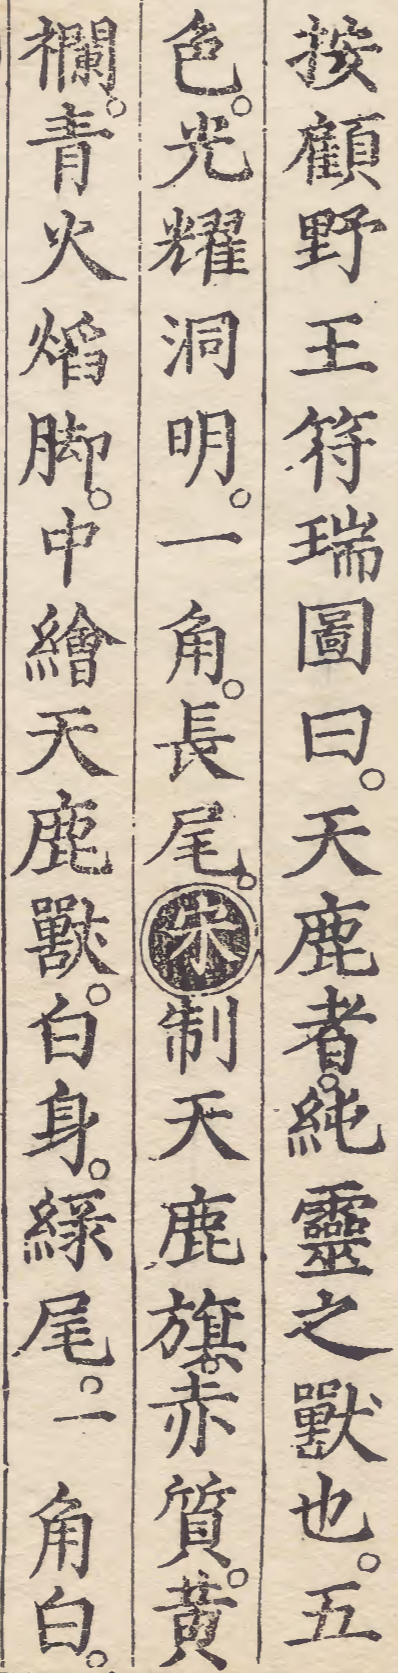 按顧野王符瑞圖曰。天鹿者。純靈之獸也。五
色。光耀洞明。一角。長尾。宋制天鹿旗。赤質。黄
襴。青火焰脚。中繪天鹿獸。白身。緑尾。一角白。